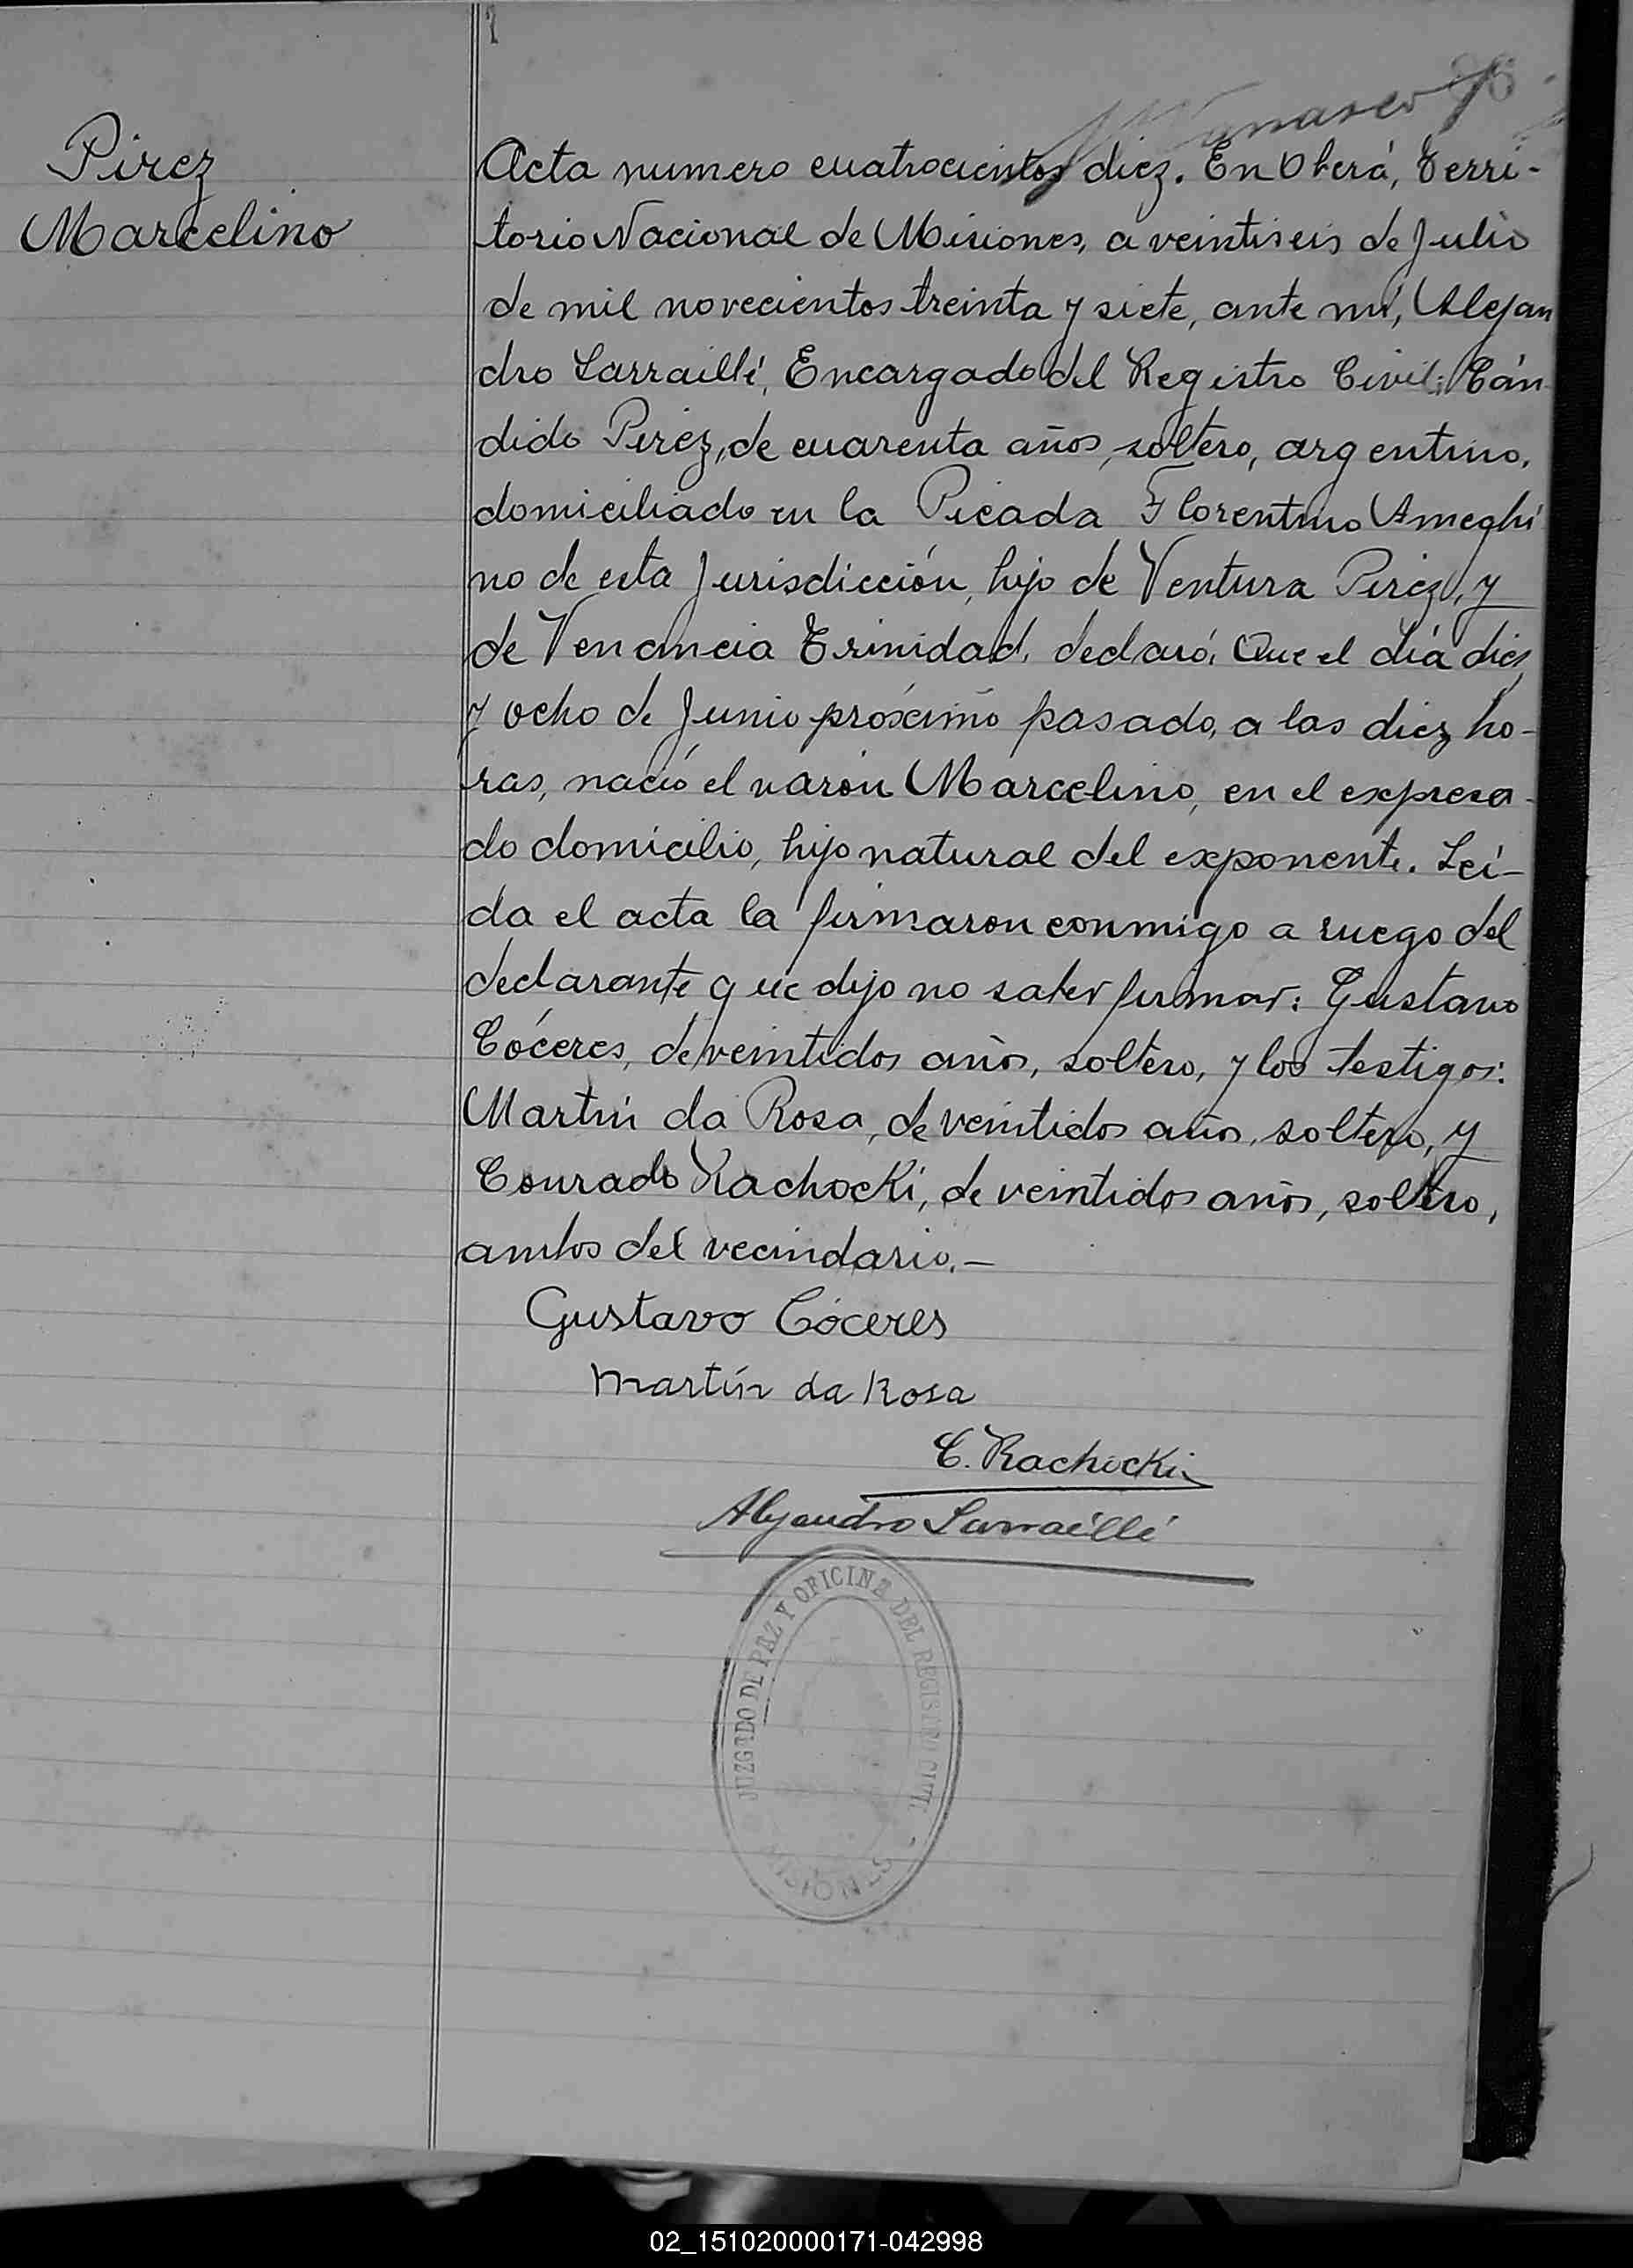 Pirez
Marcelino
Acta numero cuatrocientos diez. En Oberá, Terri-
torio Nacional de Misiones, a veintiseis de Julio
de mil novecientos treinta y siete, ante mí, Alejan
dro Larraillé, Encargado del Registro Civil: Cán
dido Pirez, de cuarenta años, soltero, argentino,
domiciliado en la Picada Florentino Ameghi
no de esta Jurisdicción, hijo de Ventura Pirez, y
de Venancia Trinidad, declaró: Que el día diez
y ocho de Junio próximo pasado, a las diez ho-
ras, nació el varón Marcelino, en el expresa-
do domicilio, hijo natural del exponente. Leí-
da el acta la firmaron conmigo a ruego del
declarante que dijo no saber firmar: Gustavo
Cóceres, de veintidos años, soltero, y los testigos:
Martín da Rosa, de veintidos años, soltero, y
Conrado Rachocki, de veintidos años, soltero,
ambos del vecindario.—
Gustavo Cóceres
Martín da Rosa
C. Rachocki
Alejandro Larraillé
JUZGADO DE PAZ Y OFICINA DEL REGISTRO CIVIL
MISIONES
02_151020000171-042998